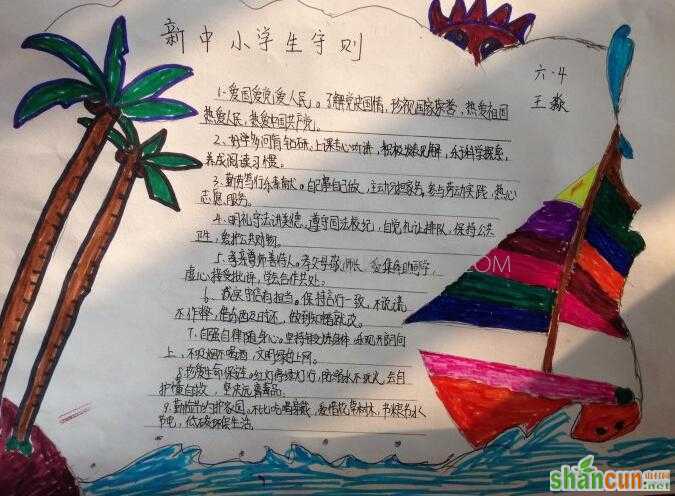 新中小学生守则
六.4
王淼
1.爱国爱党爱人民。了解党史国情，珍视国家荣誉，热爱祖国
热爱人民，热爱中国共产党。
2.好学多问肯钻研。上课专心听讲，积极发表见解，乐于科学探索，
养成阅读习惯。
3.勤劳笃行乐奉献。自己事自己做，主动分担家务，参与劳动实践，热心
志愿服务。
4.明礼守法讲美德。遵守国法校纪，自觉礼让排队，保持公共
卫生，爱护公共财物。
5.孝亲尊师善待人。孝父母敬师长，爱集体助同学，
虚心接受批评，学会合作共处。
6.诚实守信有担当。保持言行一致，不说谎
不作弊，借东西及时还，做到知错就改。
7.自强自律健身心。坚持锻炼身体，乐观开朗向
上，不吸烟不喝酒，文明绿色上网。
8.珍爱生命保安全。红灯停绿灯行，防溺水不玩火，会自
护懂自救，坚决远离毒品。
9.勤俭节约护家园。不比吃喝穿戴，爱惜花草树木，节粮节水
节电，低碳环保生活。
.COM
shancun.net